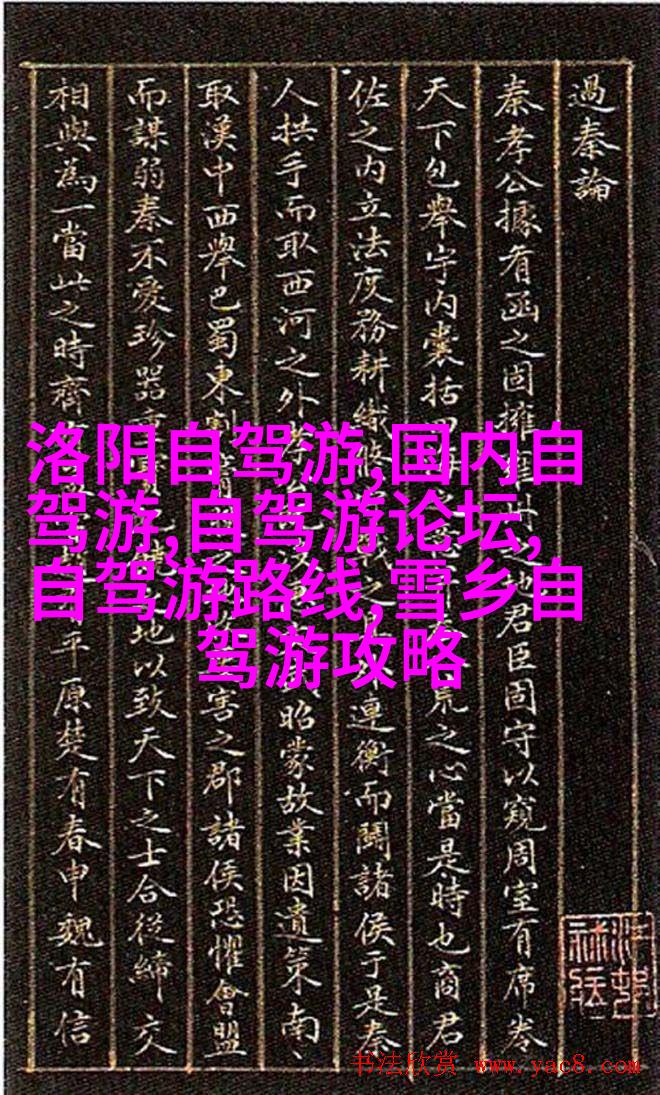 過秦論
秦孝公據有函之固擁之地君臣固守以窺周室有席卷
天下包舉宇内囊括荒之心當是時也商君
佐之内立法度務耕織連衡而鬭諸侯于是秦
人拱手而取西河之外昭蒙故業因遺策南
取漢中西舉巴蜀東割害之郡諸侯恐懼會盟
而謀弱秦不愛珍器地以致天下之士合從締交
相與為一當此之時齊平原楚有春申魏有信
洛阳自驾游,国内自
驾游,自驾游论坛,
自驾游路线,雪乡自
驾游攻略
书法欣赏 www.yac8.com